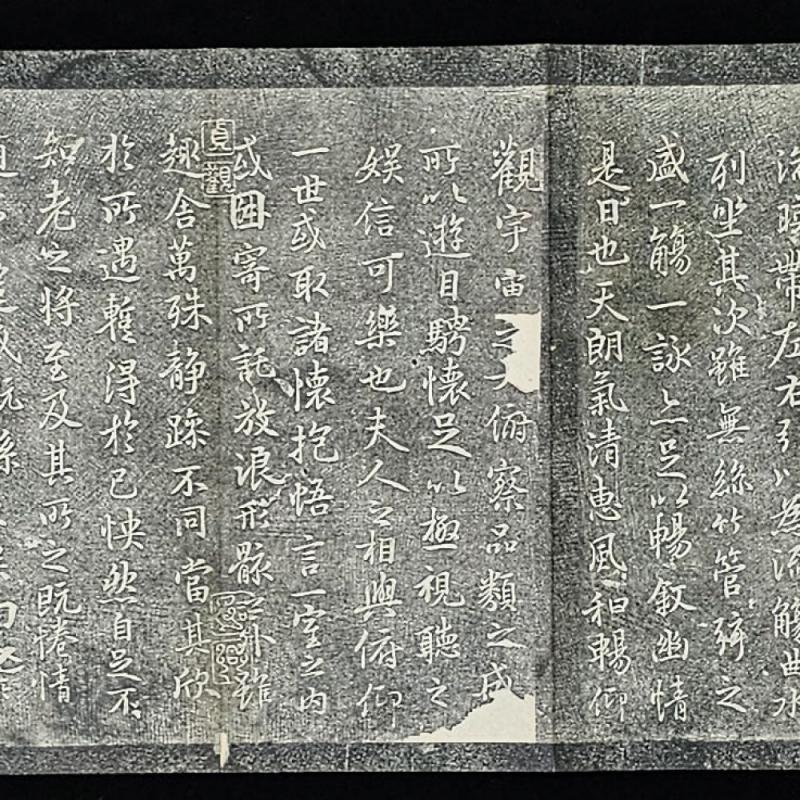 湍暎帶左右引以為流觴曲水
列坐其次雖無絲竹管弦之
盛一觴一詠亦足以暢叙幽情
是日也天朗氣清惠風和暢仰
觀宇宙之大俯察品類之盛
所以遊目騁懷足以極視聽之
娛信可樂也夫人之相與俯仰
一世或取諸懷抱悟言一室之內
或因寄所託放浪形骸之外雖
貞觀
趣舍萬殊靜躁不同當其欣
於所遇蹔得於己怏然自足不
知老之將至及其所之既惓情